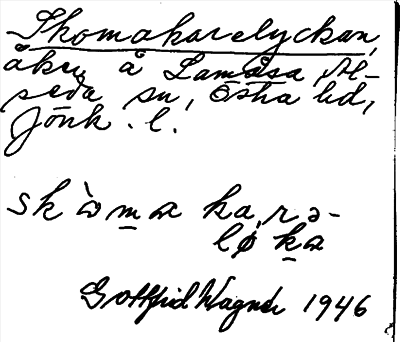 Skomakarelyckan,
åker å Lamåsa, Al-
seda sn, Östra hd,
Jönk. l.
skὼma ka, rə-
lø ka
Gottfrid Wagner 1946